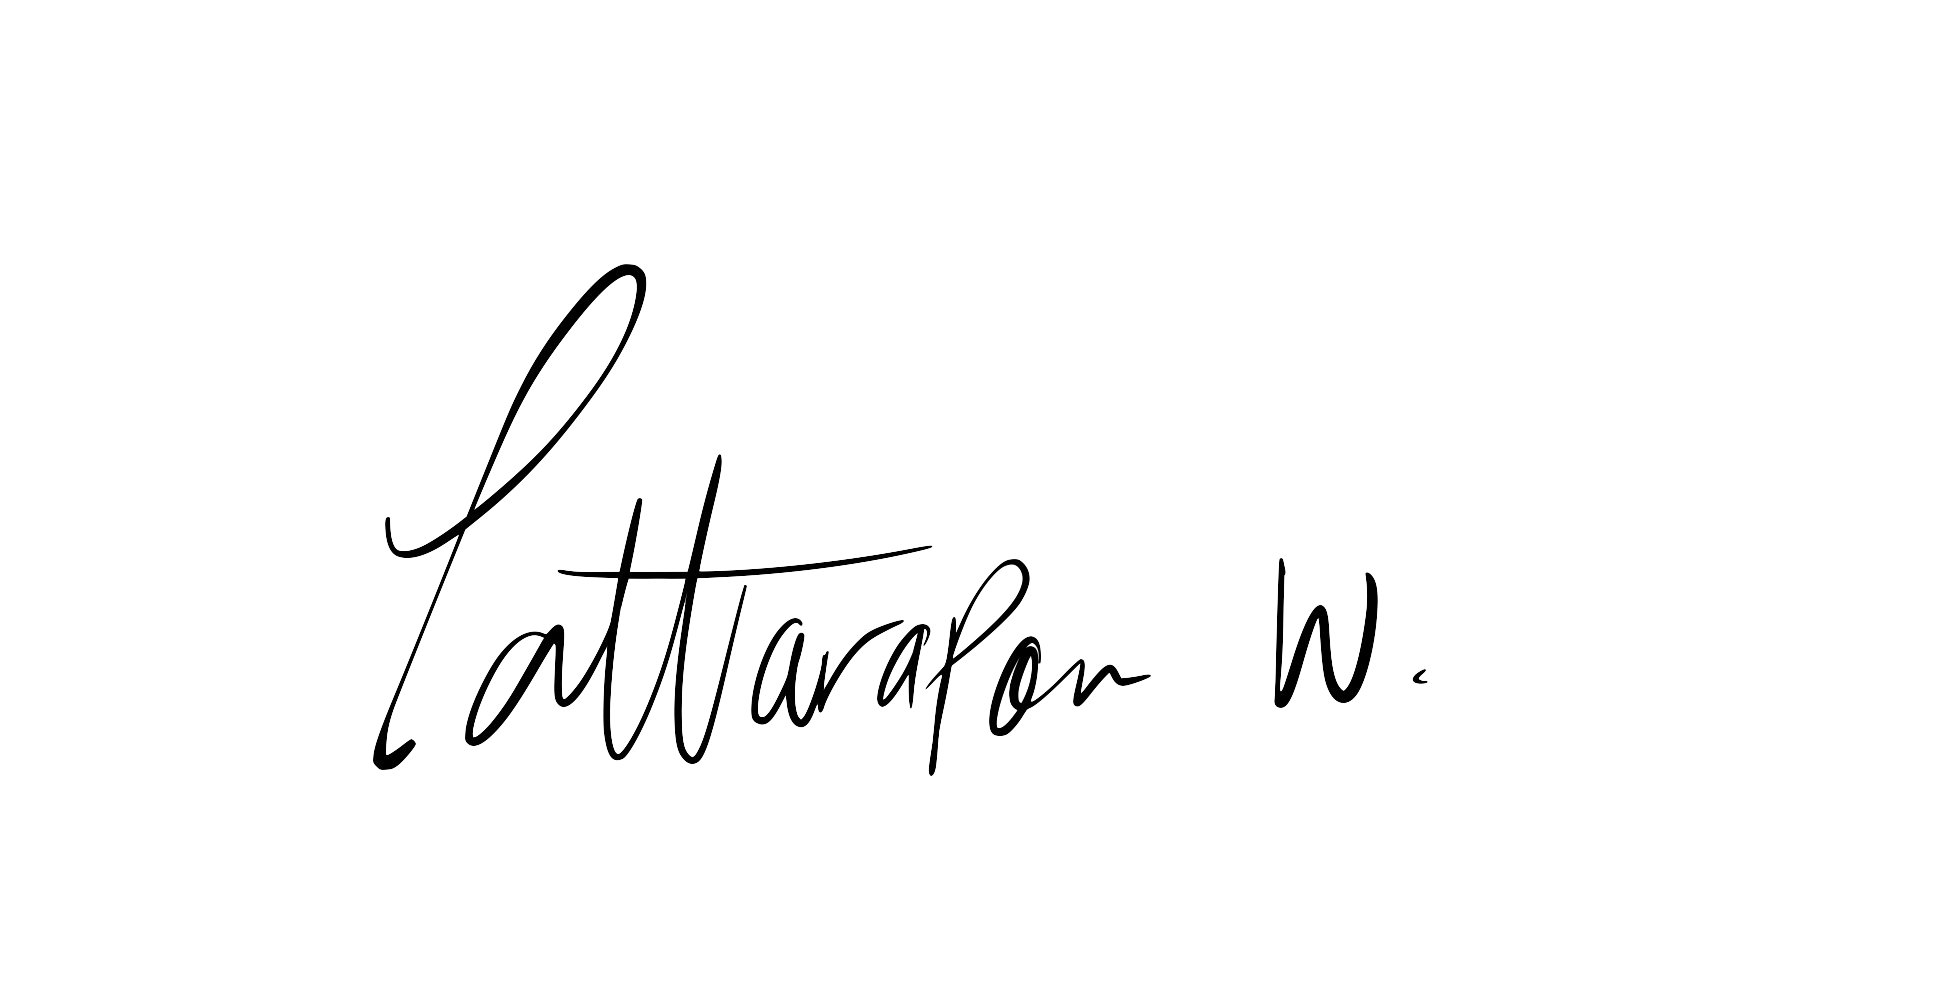 Pattarapon W.